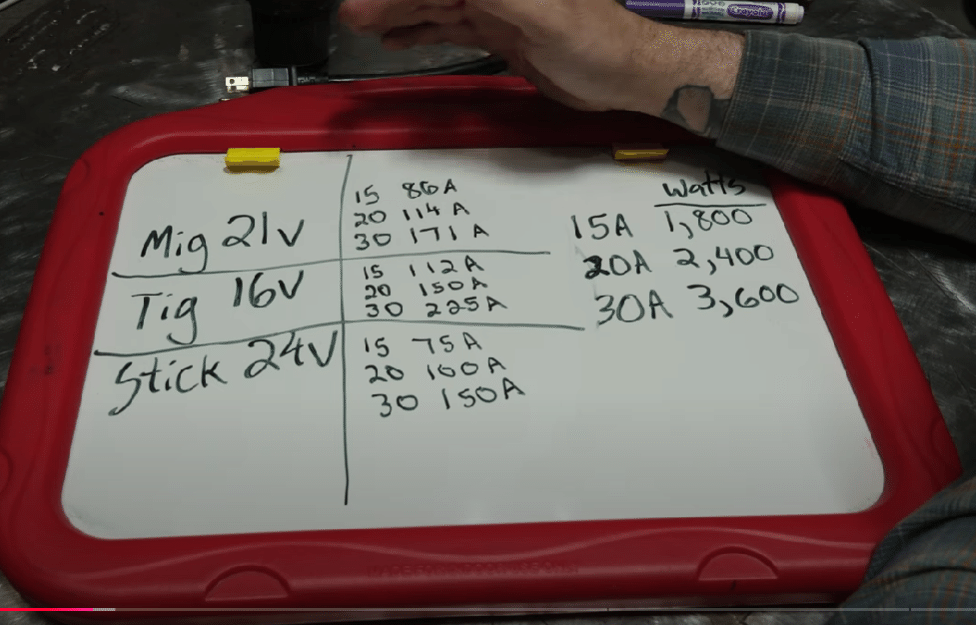 Crayola
Mig 21V
15 86A
20 114A
30 171A
Tig 16V
15 112A
20 150A
30 225A
Stick 24V
15 75A
20 100A
30 150A
Watts
15A 1,800
20A 2,400
30A 3,600